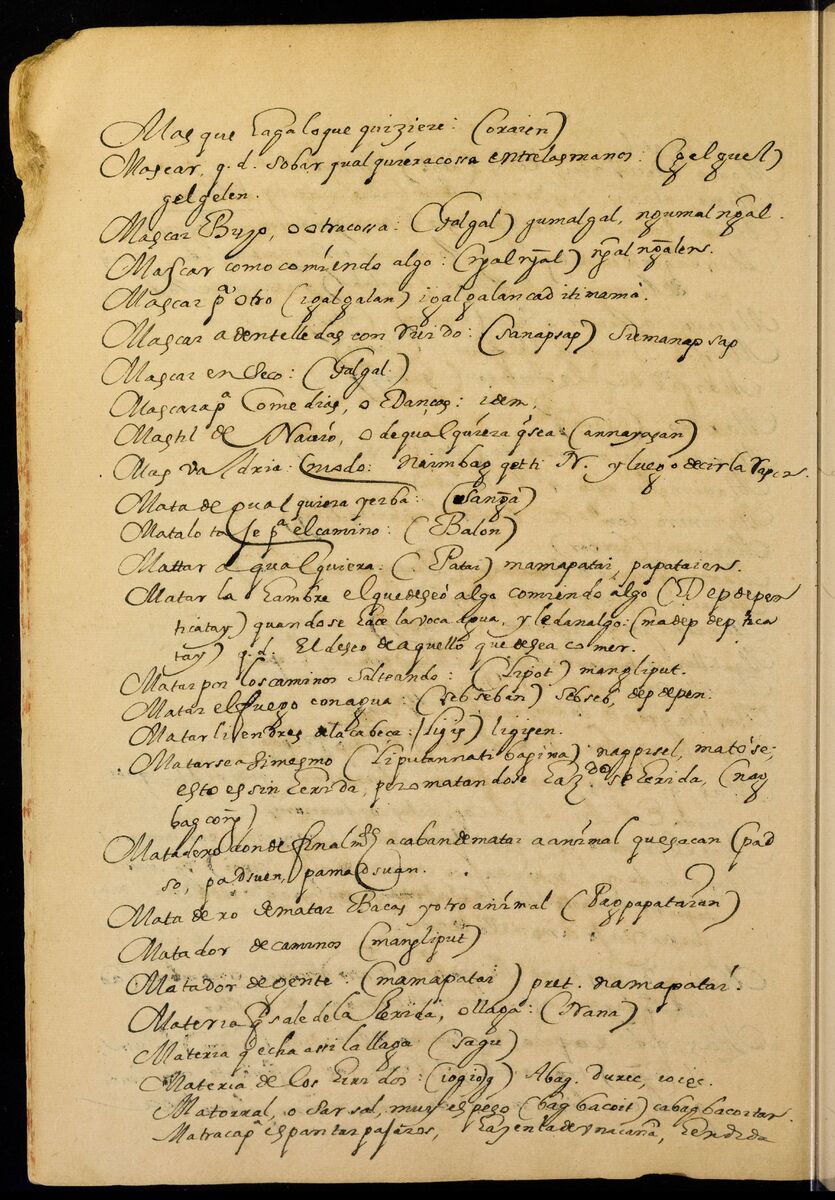 Mas que haga lo que quiziere: (oraien)
Mascar, q. d. sobar qualquiera cossa entre las manos: (gelguel)
gelgelen.
Mascar Buyo, o otra cossa: (Galgal) gumalgal, ngumalngal.
Mascar como comiendo algo: (ngalngal) ngalngalens.
Mascar pª otro (igalgalan) igalgalan cad iti mama.
Mascar a dentelledas con Ruido: (sanapsap) siemanapsap
Mascar en seco: (Galgal.)
Mascara pª Comedias, o Danças: idem,
Mastil de Navio, o de qualquiera q sea: (annayosan)
Mas valdria: (modo: naimbag getti N. y luego decir la
Mata de qualquiera yerba: (Sanga)
Matalotaje pª el camino: (Balon)
Mattar a qualquiera: (Patai) mamapatai, papataiens.
Matar la hambre el que deseo algo comiendo algo (Depdepen
ticatay) quando se hace la voca agua, y le dan algo: (madepdep tica
tay) q. d. El deseo de aquello que desea comer.
Matar por los caminos salteando: (Lipot) mangliput.
Matar el fuego con agua: (sebseban) sebseb, depdepen.
Matar liendres de la cabeca: (ligis) ligisen.
Matarse a simesmo (Liputannati bagina) nagpisel, matose;
esto es sin herida, pero matandose haz.do se herida, (nag
bag
Matadero donde finalm.te acaban de matar a animal que sacan (pad
so, padsuen, pamadsuan.
Matadero de matar Bacas y otro animal (Pagpapataian)
Matador de caminos (mangliput)
Matador de gente: (mamapatai) pret. namapatai.
Materia q sale de la herida, o llaga: (Nana)
Materia q echa assi la llaga (sagu)
Materia de los heridos: (iogiog) Abag. durec,
Matorral, o Sarsal, muy espeso (bagbacoit) cabagbacoitan.
Matraca pª espantar pajaros, hazen la de una caña, hendida